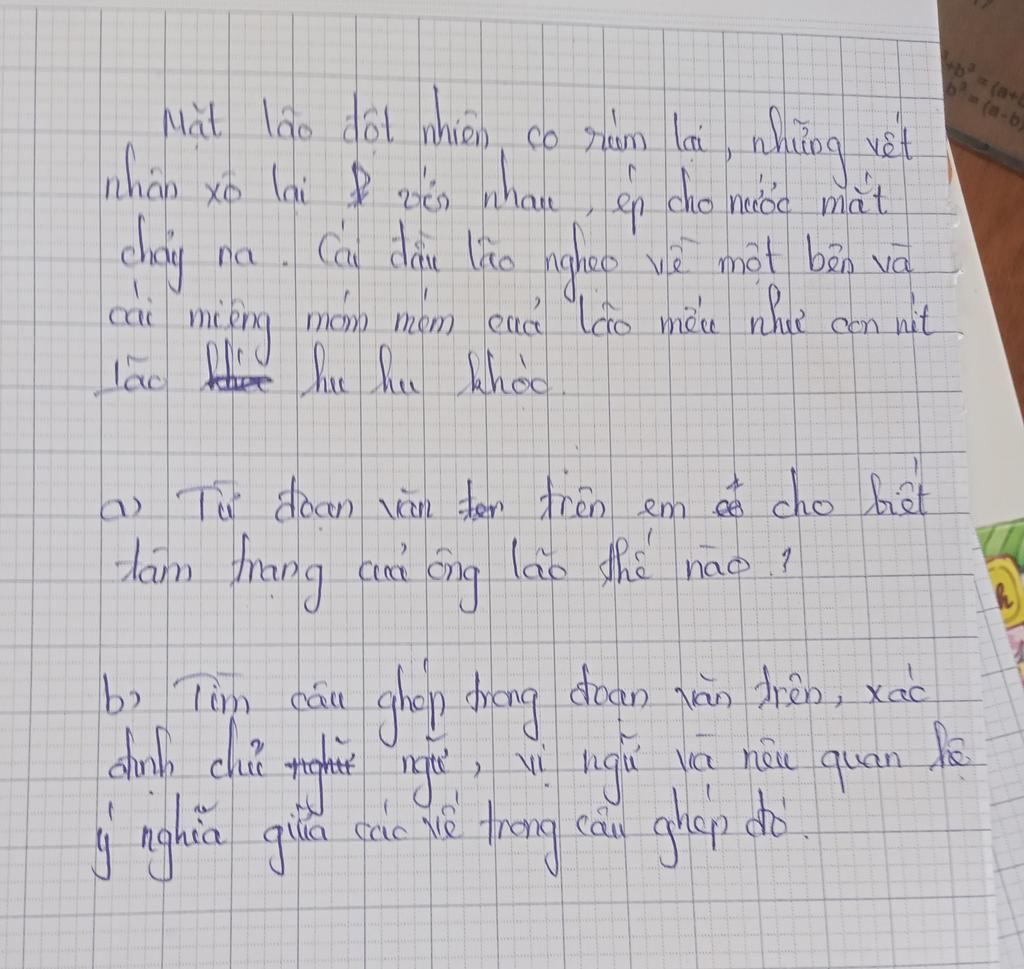 Mặt lão đột nhiên co rúm lại, những vết
nhăn xô lại với nhau, ép cho nước mắt
chảy ra. Cái đầu lão nghẹo về một bên và
cái miệng móm mém của lão mếu như con nít
lão hu hu khóc.
a) Từ đoạn văn trên em cho biết
tâm trạng của ông lão thế nào ?
b) Tìm câu ghép trong đoạn văn trên, xác
định chủ ngữ, vị ngữ và nêu quan hệ
ý nghĩa giữa các vế trong câu ghép đó.
+b³ = (a+b
b³ = (a-b)